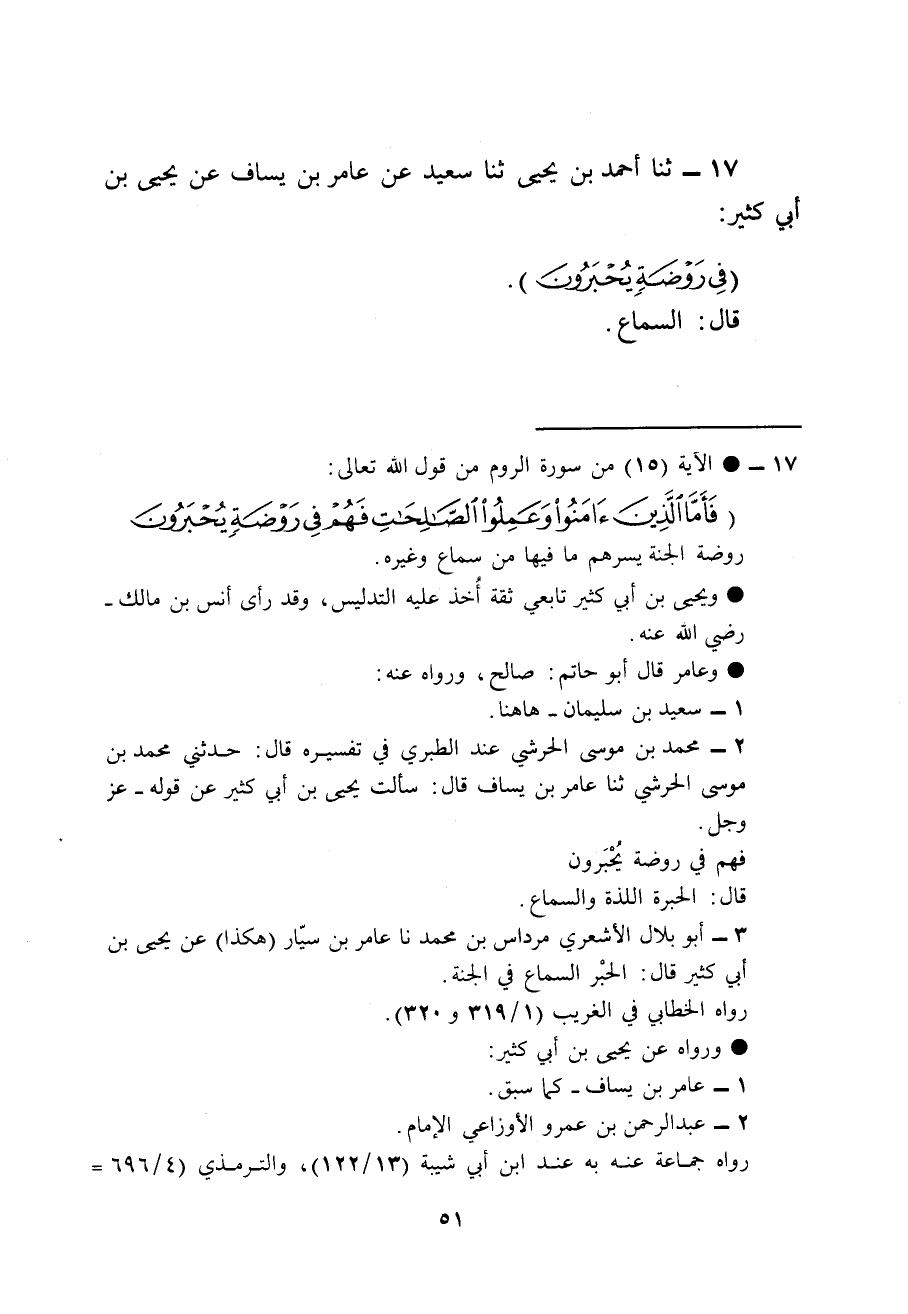 ١٧ – ثنا أحمد بن يحيى ثنا سعيد عن عامر بن يساف عن يحيى بن
أبي كثير:
(فِي رَوْضَةٍ يُحْبَرُونَ).
قال: السماع.
١٧ – ● الآية (١٥) من سورة الروم من قول الله تعالى:
(فَأَمَّا ٱلَّذِينَ ءَامَنُوا۟ وَعَمِلُوا۟ ٱلصَّـٰلِحَـٰتِ فَهُمْ فِي رَوْضَةٍ يُحْبَرُونَ
روضة الجنة يسرهم ما فيها من سماع وغيره.
● ويحيى بن أبي كثير تابعي ثقة أُخذ عليه التدليس، وقد رأى أنس بن مالك -
رضي الله عنه.
● وعامر قال أبو حاتم: صالح، ورواه عنه:
١ – سعيد بن سليمان - هاهنا.
٢ – محمد بن موسى الحرشي عند الطبري في تفسيره قال: حدثني محمد بن
موسى الحرشي ثنا عامر بن يساف قال: سألت يحيى بن أبي كثير عن قوله - عز
وجل.
فهم في روضة يُحْبَرون
قال: الحبرة اللذة والسماع.
٣ – أبو بلال الأشعري مرداس بن محمد نا عامر بن سيّار (هكذا) عن يحيى بن
أبي كثير قال: الحبْر السماع في الجنة.
رواه الخطابي في الغريب (٣١٩/١ و ٣٢٠).
● ورواه عن يحيى بن أبي كثير:
١ – عامر بن يساف - كما سبق.
٢ – عبدالرحمن بن عمرو الأوزاعي الإمام.
رواه جماعة عنه به عند ابن أبي شيبة (١٢٢/١٣)، والترمذي (٦٩٦/٤ =
٥١